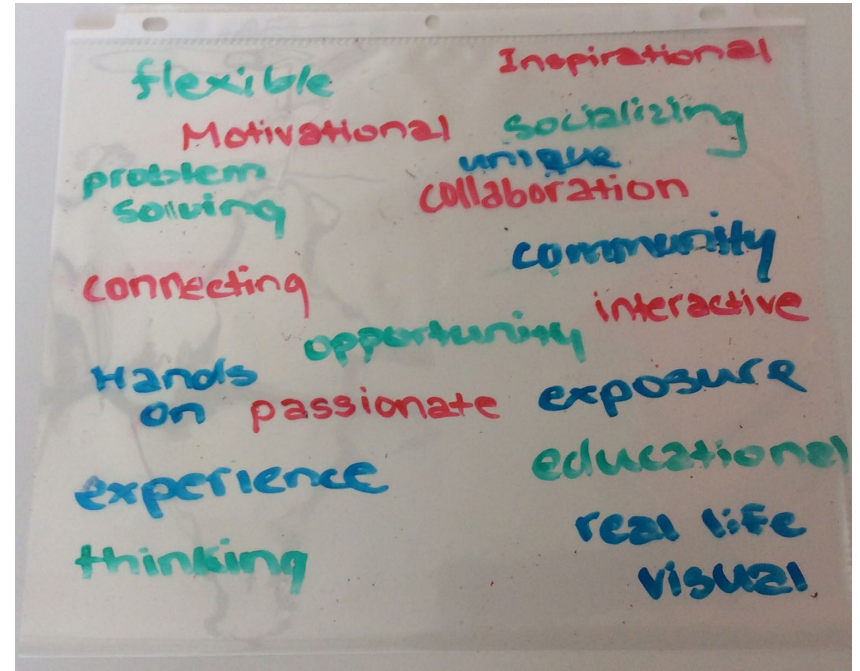 Inspirational
flexible
Motivational
socializing
unique
problem
solving
collaboration
community
connecting
interactive
opportunity
Hands
on
passionate
exposure
educational
experience
real life
thinking
visual